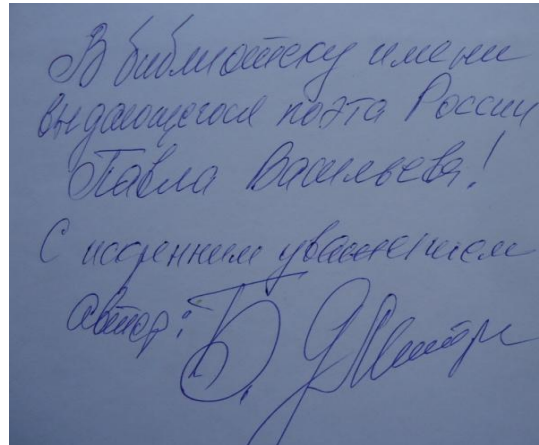 В библиотеку имени
выдающегося поэта России
Павла Васильева!
С искренним уважением
автор: Б.